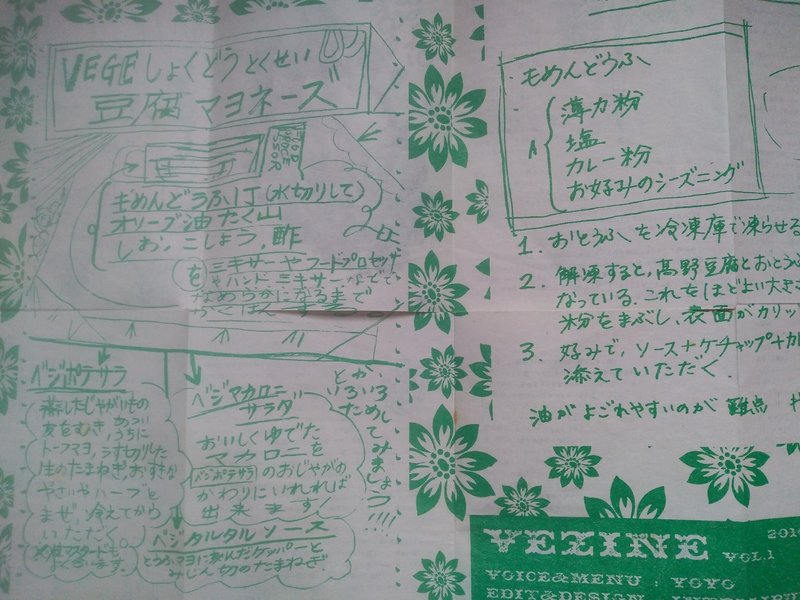 VEGEしょくどうとくせい
豆腐マヨネーズ
もめんどうふ1丁(水切りして)
オリーブ油たく山
しお、こしょう、酢
を ミキサーやフードプロセッサ
やハンドミキサーなどで
なめらかになるまで
かくはんする
ベジポテサラ
蒸したじゃがいもの
皮をむき、あついうちに
トーフマヨ、うす切りした
生のたまねぎ、お好きな
やさいやハーブを
まぜ、冷えてから
いただく。
ベジマカロニ
サラダ
おいしくゆでた
マカロニを
ベジポテサラのおじゃがの
かわりにいれれば
出来ます!
ベジタルタルソース
とうふマヨに刻んだケッパーと
みじん切りのたまねぎ。
とか、
いろいろ
ためしてみましょう!!!!
もめんどうふ
A
薄力粉
塩
カレー粉
お好みのシーズニング
1. おとうふを冷凍庫で凍らせる
2. 解凍すると、高野豆腐とおとうふ
なっている。これをほどよい大きさ
粉をまぶし、表面がカリッ
3. 好みで、ソース+ケチャップ+カ
添えていただく
油がよごれやすいのが 難点
VEZINE VOL.1
201
VOICE&MENU : YOYO
EDIT&DESIGN